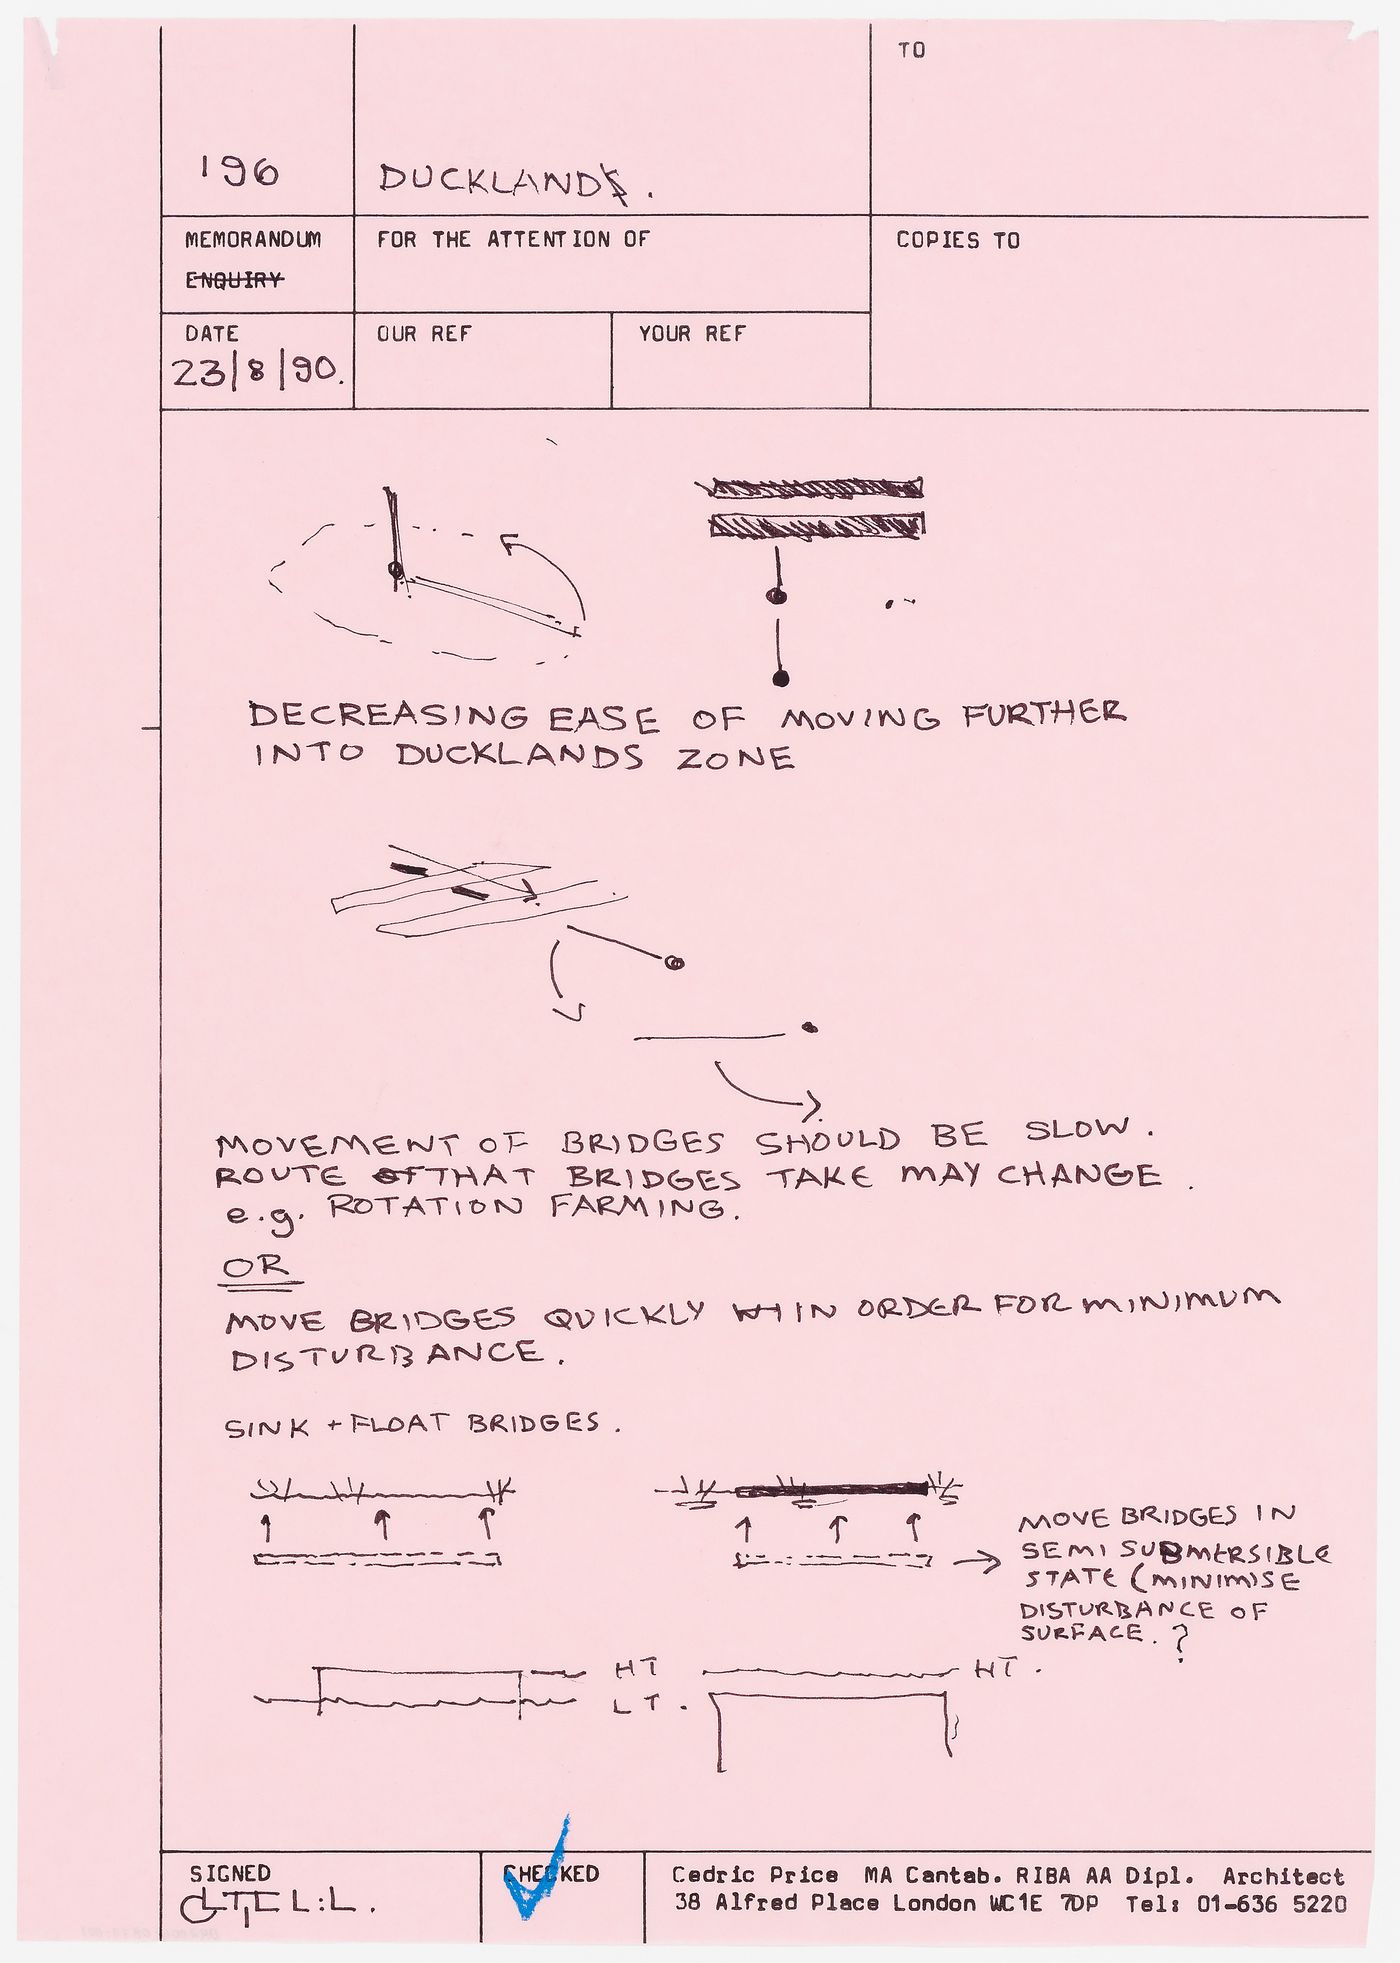 TO
196
DUCKLAND
MEMORANDUM
ENQUIRY
FOR THE ATTENTION OF
COPIES TO
DATE
23/8/90.
OUR REF
YOUR REF
DECREASING EASE OF MOVING FURTHER
INTO DUCKLANDS ZONE
MOVEMENT OF BRIDGES SHOULD BE SLOW.
ROUTE OF THAT BRIDGES TAKE MAY CHANGE.
e.g. ROTATION FARMING.
OR
MOVE BRIDGES QUICKLY IN ORDER FOR MINIMUM
DISTURBANCE.
SINK + FLOAT BRIDGES.
MOVE BRIDGES IN
SEMI SUBMERSIBLE
STATE (MINIMISE
DISTURBANCE OF
SURFACE. ?
HT
HT.
LT.
SIGNED
CHECKED
Cedric Price MA Cantab. RIBA AA Dipl. Architect
38 Alfred Place London WC1E 7DP Tel: 01-636 5220